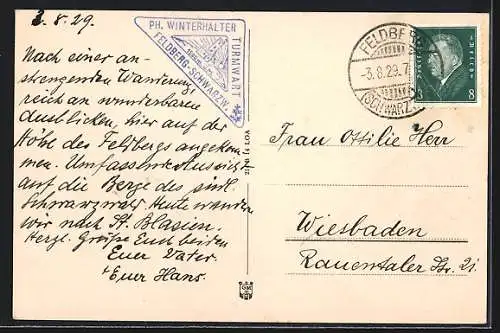 3.8.29.
Nach einer an-
strengenden Wanderung,
reich an wunderbaren
Ausblicken, hier auf der
Höhe des Feldbergs angekom-
men. Umfassende Aussicht
auf die Berge des südl.
Schwarzwalds. Heute wandern
wir nach St. Blasien.
Herzl. Grüsse Euch beiden
Euer Vater
+ Euer Hans.
PH. WINTERHALTER
TURMWART
FELDBERG-SCHWARZW.
FELDBERG
-3.8.29.7
(SCHWARZW
8 8
Frau Ottilie Herr
Wiesbaden
Rauentaler Str. 21.